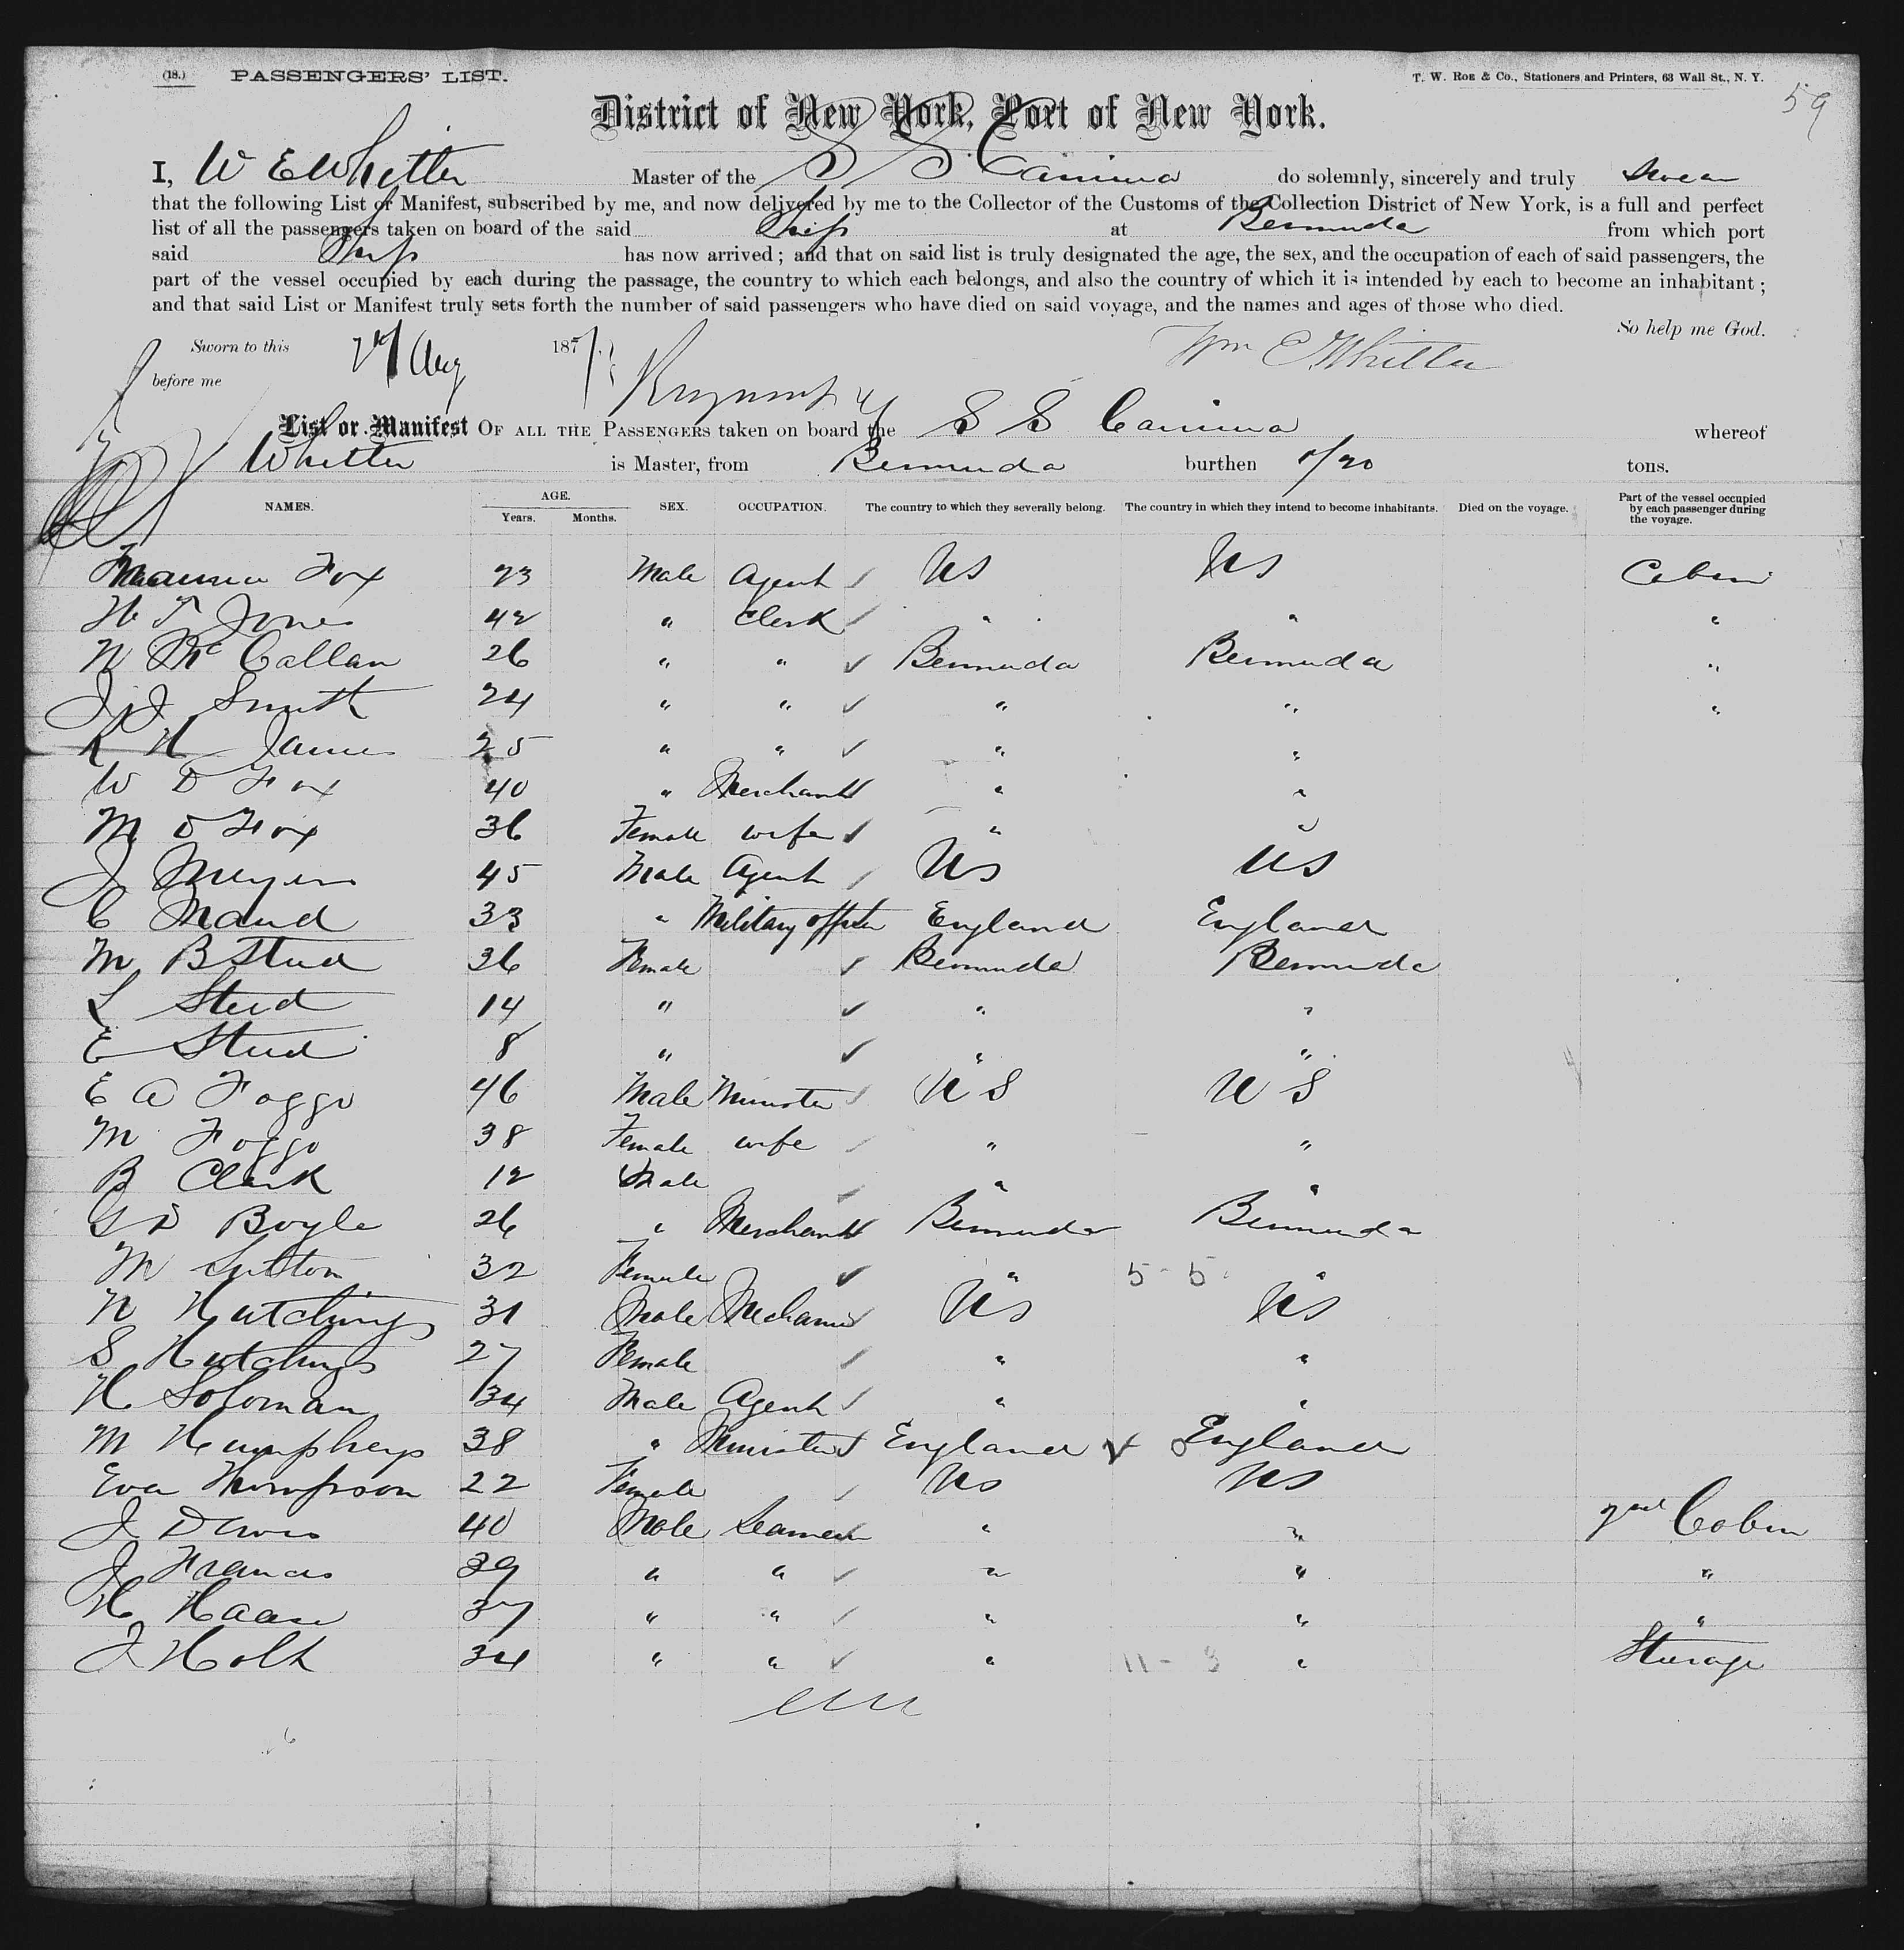 (18.) PASSENGERS' LIST.
T. W. Roe & Co., Stationers and Printers, 63 Wall St., N. Y.
59
District of New York, Port of New York.
I, W E Whitter Master of the S S Canima do solemnly, sincerely and truly swear
that the following List or Manifest, subscribed by me, and now delivered by me to the Collector of the Customs of the Collection District of New York, is a full and perfect
list of all the passengers taken on board of the said Ship at Bermuda from which port
said Ship has now arrived; and that on said list is truly designated the age, the sex, and the occupation of each of said passengers, the
part of the vessel occupied by each during the passage, the country to which each belongs, and also the country of which it is intended by each to become an inhabitant;
and that said List or Manifest truly sets forth the number of said passengers who have died on said voyage, and the names and ages of those who died.
So help me God.
Sworn to this Aug 187
before me
Wm E Whitter
List or Manifest OF ALL THE PASSENGERS taken on board the S S Canima whereof
Whitter is Master, from Bermuda burthen tons.
NAMES. AGE. Years. Months. SEX. OCCUPATION. The country to which they severally belong. The country in which they intend to become inhabitants. Died on the voyage. Part of the vessel occupied by each passenger during the voyage.
Fox 23 Male Agent US US Cabin
W T Jones 42 " Clerk " " "
N McCallan 26 " " Bermuda Bermuda "
J J Smith 24 " " " " "
R H James 25 " " " "
W D Fox 40 " Merchant " "
M D Fox 36 Female wife " "
J Meyers 45 Male Agent US US
C Maud 33 " Military officer England England
M B Stud 36 Female Bermuda Bermuda
L Stud 14 " " "
E Stud 8 " " "
E A Foggo 46 Male Minister US US
M Foggo 38 Female wife " "
B Clark 12 Male " "
G D Boyle 26 " Merchant Bermuda Bermuda
M Sutton 32 Female " 5-5 "
N Hutchings 31 Male Mechanic US US
S Hutchings 27 Female " "
H Soloman 34 Male Agent " "
M Humphreys 38 " Minister England England
Eva Thompson 22 Female US US
J Davis 40 Male Seaman " " 2nd Cabin
J Francis 39 " " " " "
H Haase 37 " " " " "
J Holt 34 " " " 11-3 " Steerage